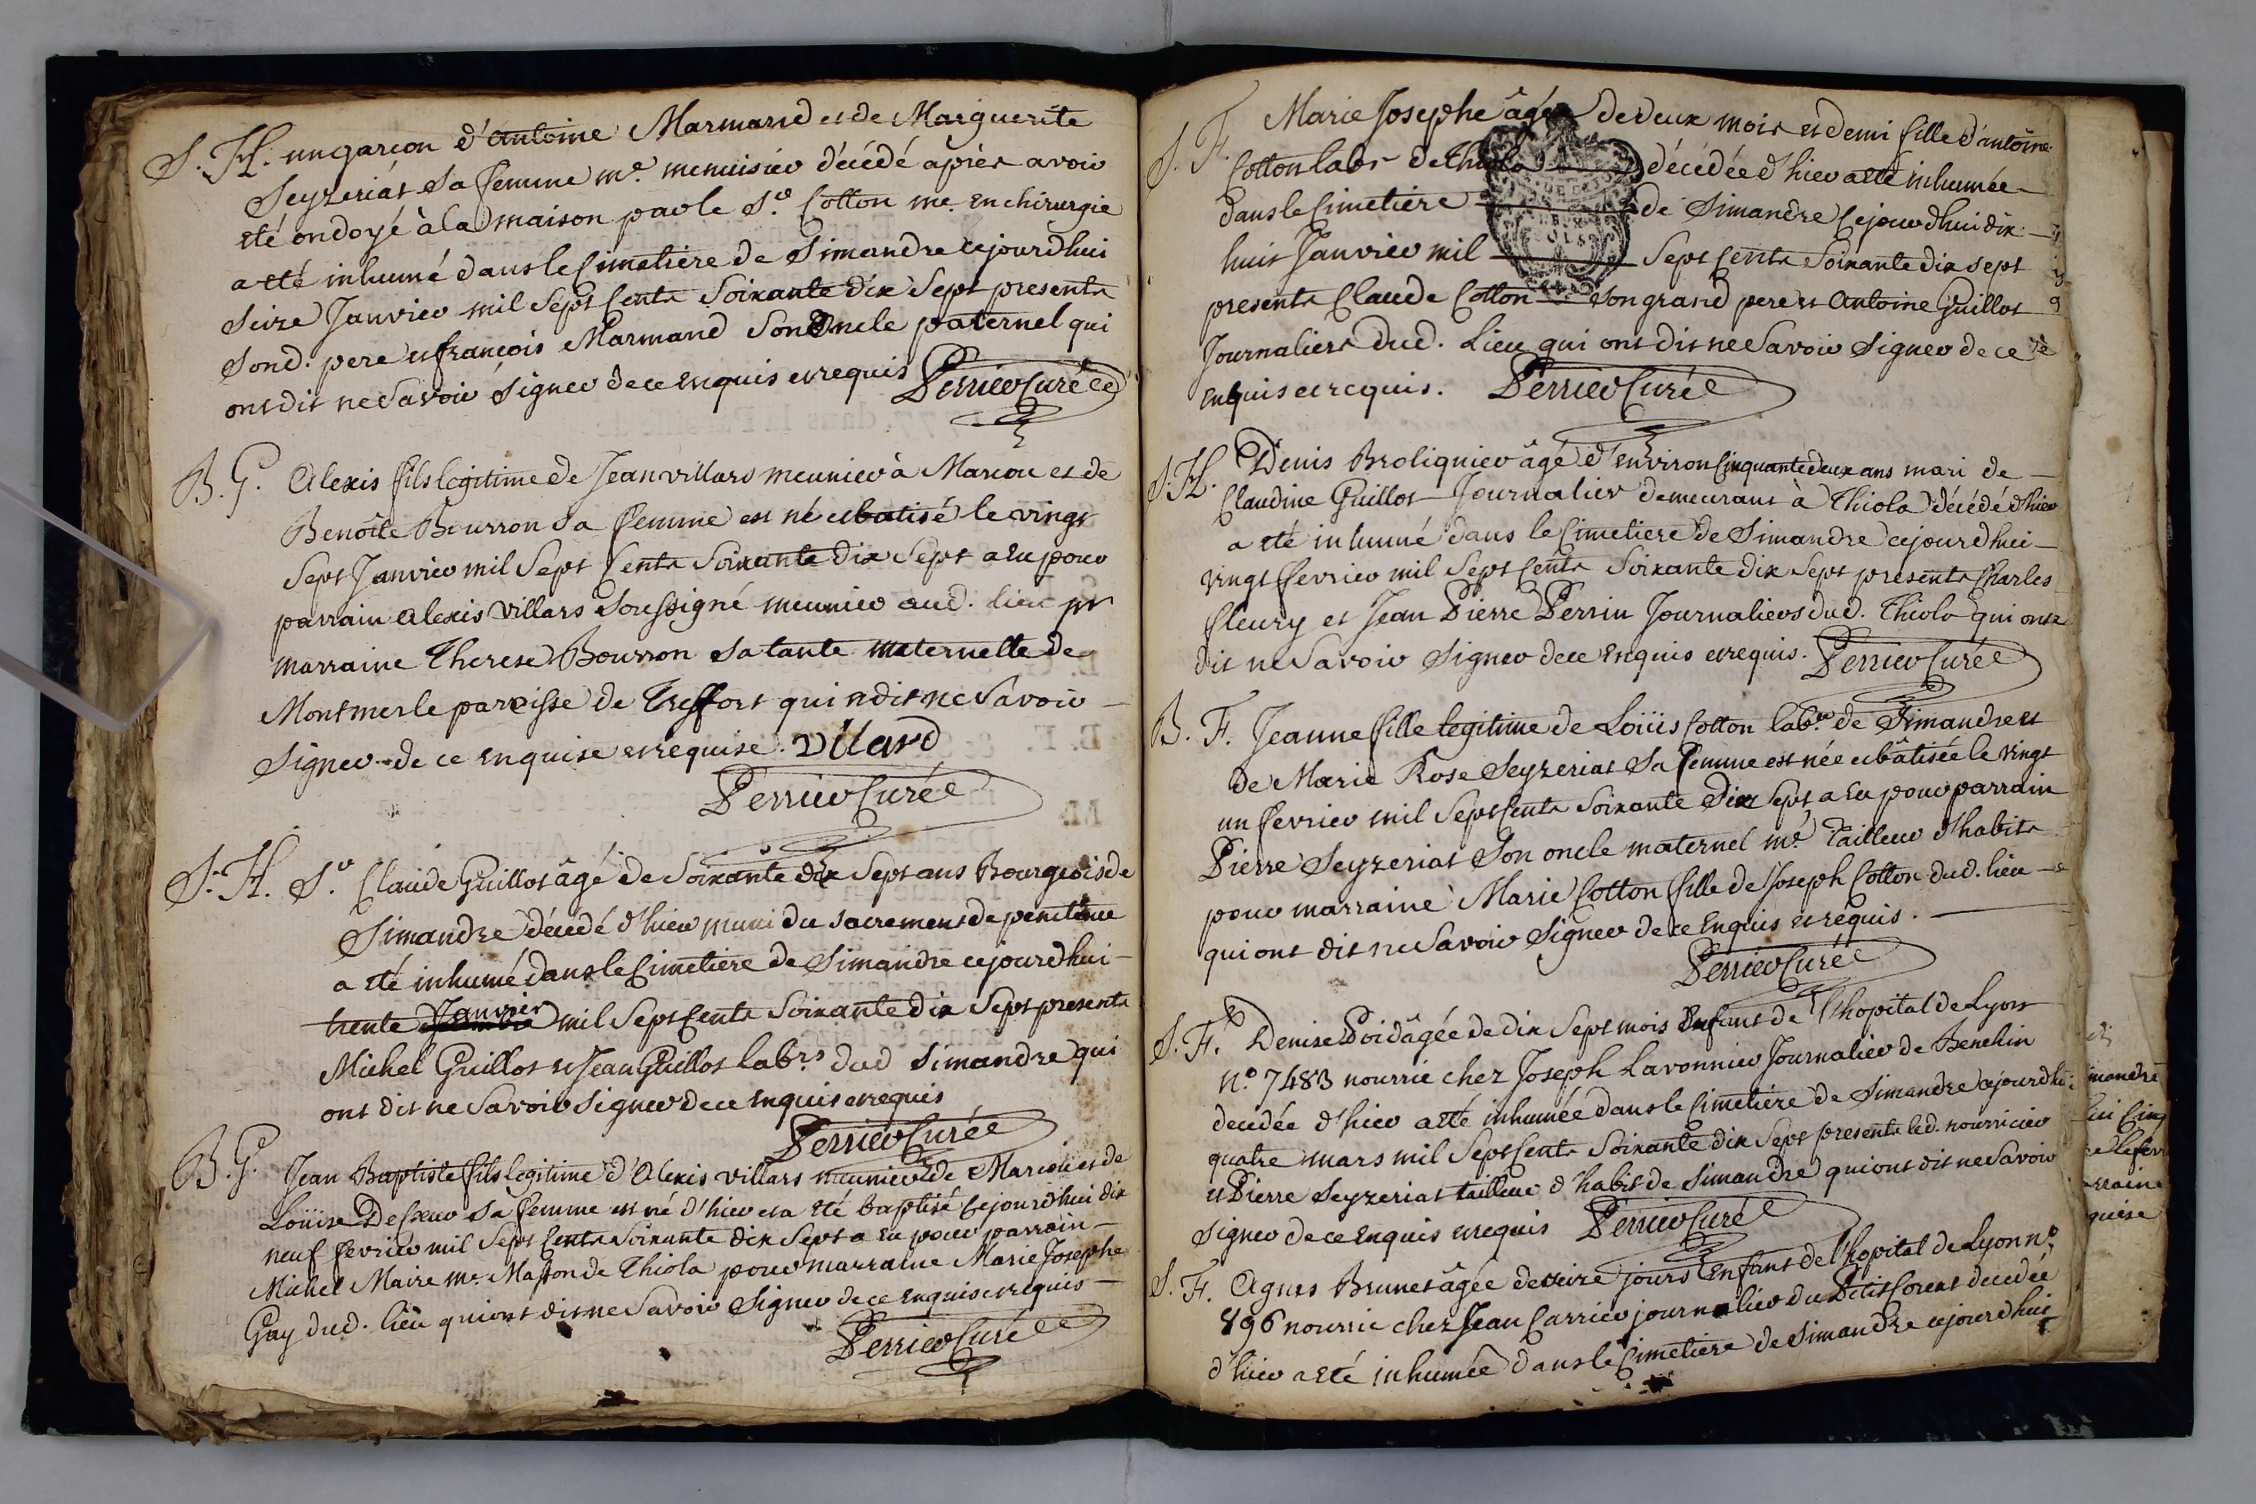 S. H. un garcon d'antoine Marmand et de Marguerite
Seyzeriat Sa femme me. menuisier décédé après avoir
eté ondoyé à la maison par le Sr. Cotton me. en chirurgie
a eté inhumé dans le Cimetiere de Simandre cejourdhui
Seize Janvier mil Sept Cents Soixante dix Sept presents
Sond. pere et françois Marmand Son oncle paternel qui
ont dit ne Savoir Signer de ce enquis et requis Perrier Curé
B. G. Alexis fils legitime de Jean villars meunier à Marcou et de
Benoîte Bourron Sa femme est né et batisé le vingt
Sept Janvier mil Sept Cents Soixante dix Sept a eu pour
parrain alexis villars Soussigné meunier aud. lieu pr
marraine Therese Bourron Sa tante maternelle de
Montmerle paroisse de Treffort qui a dit ne Savoir
Signer de ce enquise et requise. vilard
Perrier Curé
S. H. Sr. Claude Guillot âgé de Soixante dix Sept ans Bourgeois de
Simandre décédé d'hier muni du sacrement de penitence
a eté inhumé dans le Cimetiere de Simandre cejourdhui
trente Janvier mil Sept Cents Soixante dix Sept presents
Michel Guillot et Jean Guillot labrs. dud Simandre qui
ont dit ne Savoir Signer de ce enquis et requis
Perrier Curé
B. G. Jean Baptiste fils legitime d'Alexis villars meunier de Marcou et de
Loüise sa femme est né d'hier et a eté baptisé Cejourdhui dix
neuf fevrier mil Sept Cents Soixante dix Sept a eu pour parrain
Michel Maire me. Masson de Thiola pour marraine Marie Josephe
Guy dud. lieu qui ont dit ne Savoir Signer de ce enquis et requis
Perrier Curé
S. F. Marie Josephe âgée de deux mois et demi fille d'antoine
Cotton labr de Thiola décédée d'hier a eté inhumée
dans le Cimetiere de Simandre Cejourdhui dix
huit Janvier mil Sept Cents Soixante dix sept
presents Claude Cotton Son grand pere et antoine Guillot
Journaliers dud. Lieu qui ont dit ne Savoir Signer de ce
enquis et requis. Perrier Curé
S. H. Denis Broliquier âgé d'environ Cinquante deux ans mari de
Claudine Guillot Journalier demeurant à Thiola décédé d'hier
a eté inhumé dans le Cimetiere de Simandre cejourdhui
vingt fevrier mil Sept Cents Soixante dix Sept presents Charles
fleury et Jean Pierre Perrin Journaliers dud. Thiola qui ont
dit ne Savoir Signer de ce enquis et requis. Perrier Curé
B. F. Jeanne fille legitime de Loüis Cotton labr. de Simandre et
de Marie Rose Seyzeriat Sa femme est née et bâtisée le vingt
un fevrier mil Sept Cents Soixante Dix Sept a eu pour parrain
Pierre Seyzeriat Son oncle maternel me. Tailleur d'habits
pour marraine Marie Cotton fille de Joseph Cotton dud. lieu
qui ont dit ne Savoir Signer de ce enquis et requis.
Perrier Curé
S. F. Denise Poid âgée de dix Sept mois Enfant de l'hopital de Lyon
no. 7483 nourrie chez Joseph Lavonnier Journalier de Benehin
decedée d'hier a eté inhumée dans le Cimetiere de Simandre cejourdhui
quatre mars mil Sept Cents Soixante dix Sept presents led. nourricier
et Pierre Seyzeriat tailleur d'habit de Simandre qui ont dit ne Savoir
Signer de ce enquis et requis Perrier Curé
S. F. Agnes Brunet âgée de seize jours Enfant de l'hopital de Lyon no.
896 nourrie chez Jean Carrier journalier du Petit Corent decedée
d'hier a eté inhumée dans le Cimetiere de Simandre cejourdhui